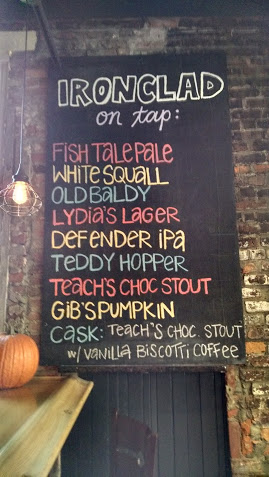 IRONCLAD
on tap:
FISH TALE PALE
WHITE SQUALL
OLD BALDY
LYDIA'S LAGER
DEFENDER IPA
TEDDY HOPPER
TEACH'S CHOC STOUT
GIB'S PUMPKIN
CASK: TEACH'S CHOC. STOUT
W/ VANILLA BISCOTTI COFFEE